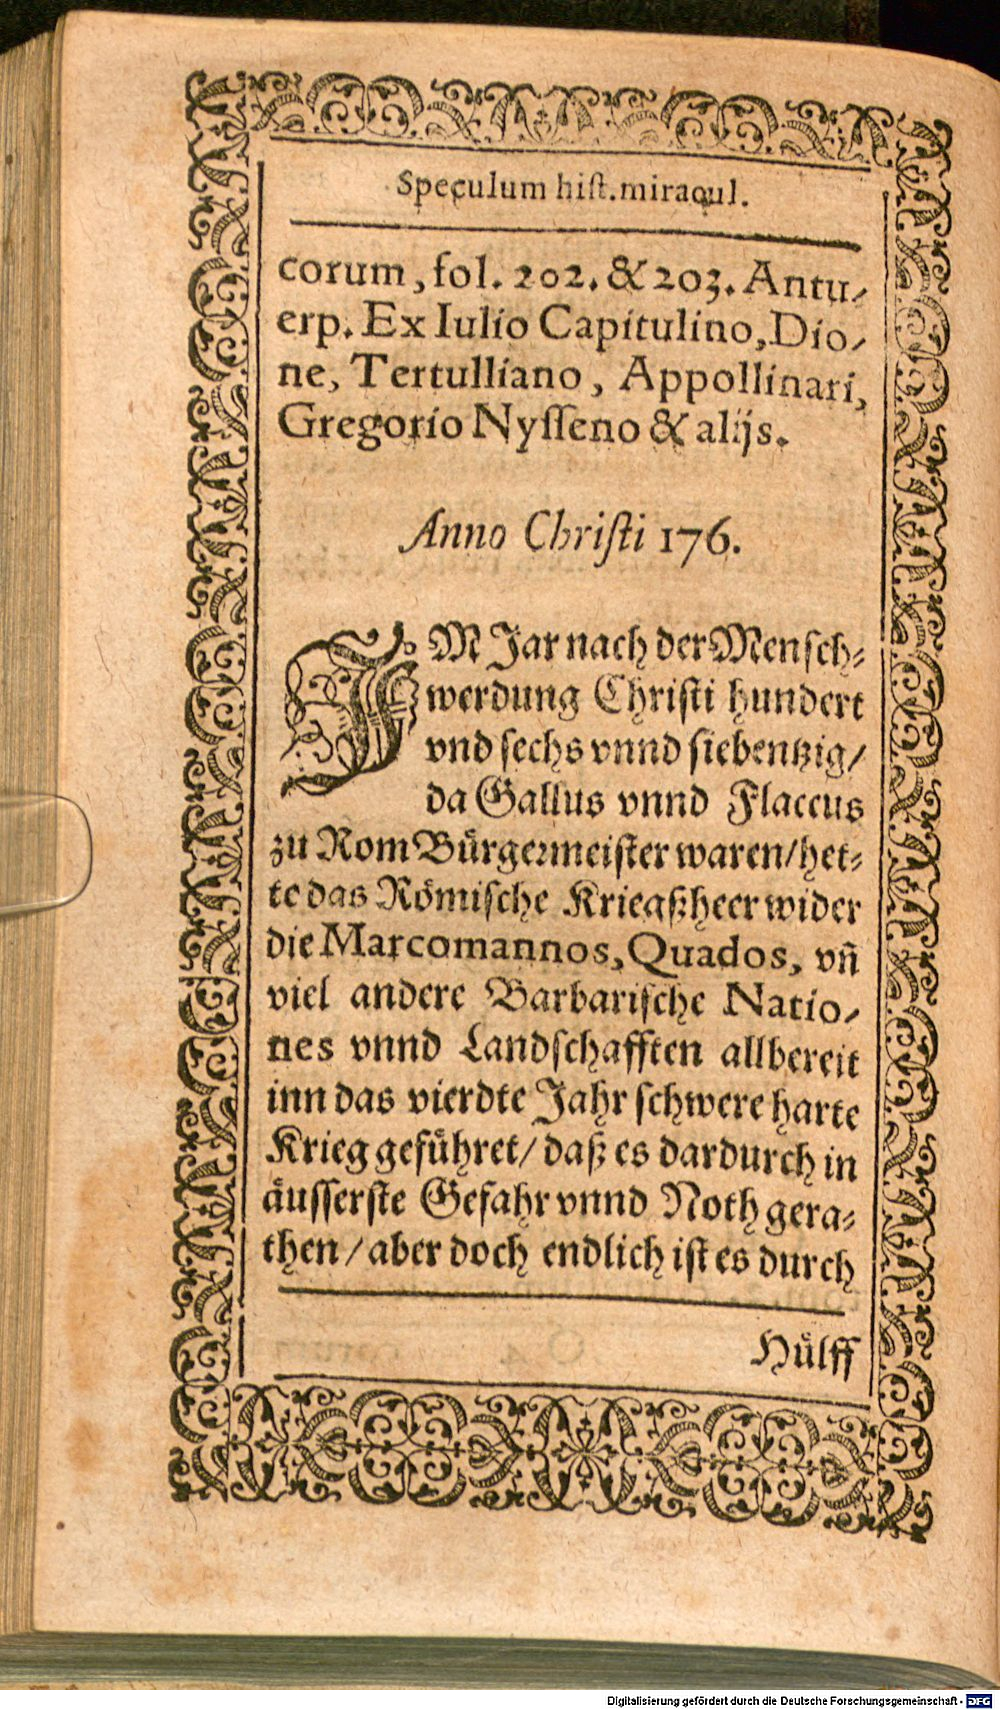 Speculum hist. miracul.
corum, fol. 202. & 203. Antu-
erp. Ex Iulio Capitulino, Dio-
ne, Tertulliano, Appollinari,
Gregorio Nysseno & alijs.
Anno Christi 176.
IM Jar nach der Mensch-
werdung Christi hundert
vnd sechs vnnd siebentzig/
da Gallus vnnd Flaccus
zu Rom Bürgermeister waren/ het-
te das Römische Kriegßheer wider
die Marcomannos, Quados, vñ
viel andere Barbarische Natio-
nes vnnd Landschafften allbereit
inn das vierdte Jahr schwere harte
Krieg geführet/ daß es dardurch in
äusserste Gefahr vnnd Noth gera-
then/ aber doch endlich ist es durch
Hülff
Digitalisierung gefördert durch die Deutsche Forschungsgemeinschaft - DFG